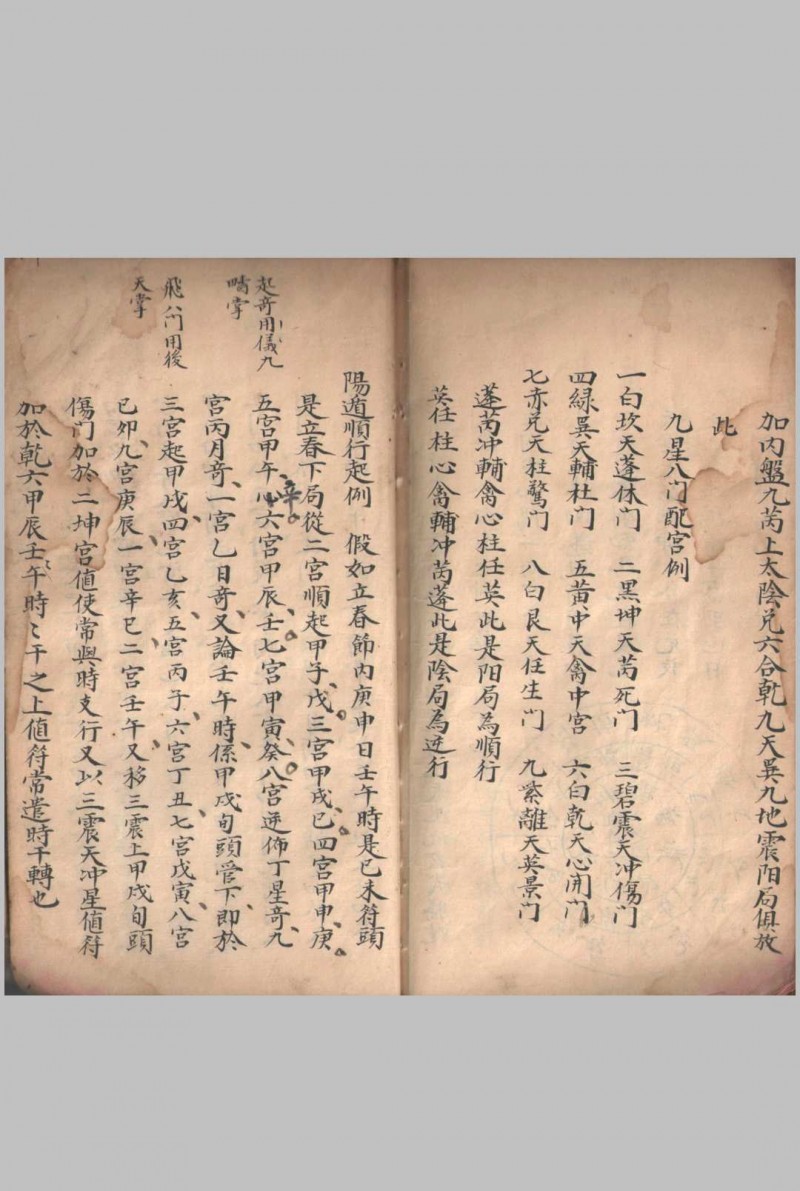 加内盤九芮上太陰兑六合乾九天巽九地震阳局俱放
此
九星八门配宫例
一白坎天蓬休门 二黑坤天芮死门 三碧震天冲傷门
四緑巽天輔杜门 五黄中天禽中宫 六白乾天心開门
七赤兑天柱驚门 八白艮天任生门 九紫離天英景门
蓬芮冲輔禽心柱任英此是阳局為順行
英任柱心禽輔冲芮蓬此是陰局為逆行
陽遁順行起例 假如立春節内庚申日壬午時是已未符頭
是立春下局從二宫順起甲子戊三宫甲戌已四宫甲申庚
五宫甲午辛六宫甲辰壬七宫甲寅癸八宫逆佈丁星奇九
宫丙月奇一宫乙日奇又論壬午時係甲戌旬頭管下即於
三宫起甲戌四宫乙亥五宫丙子六宫丁丑七宫戊寅八宫
已卯九宫庚辰一宫辛巳二宫壬午又移三震上甲戌旬頭
傷门加於二坤宫值使常與時支行又以三震天冲星值符
加於乾六甲辰壬午時〻干之上值符常遣時干轉也
起奇用儀九
晴掌
飛八门用後
天掌